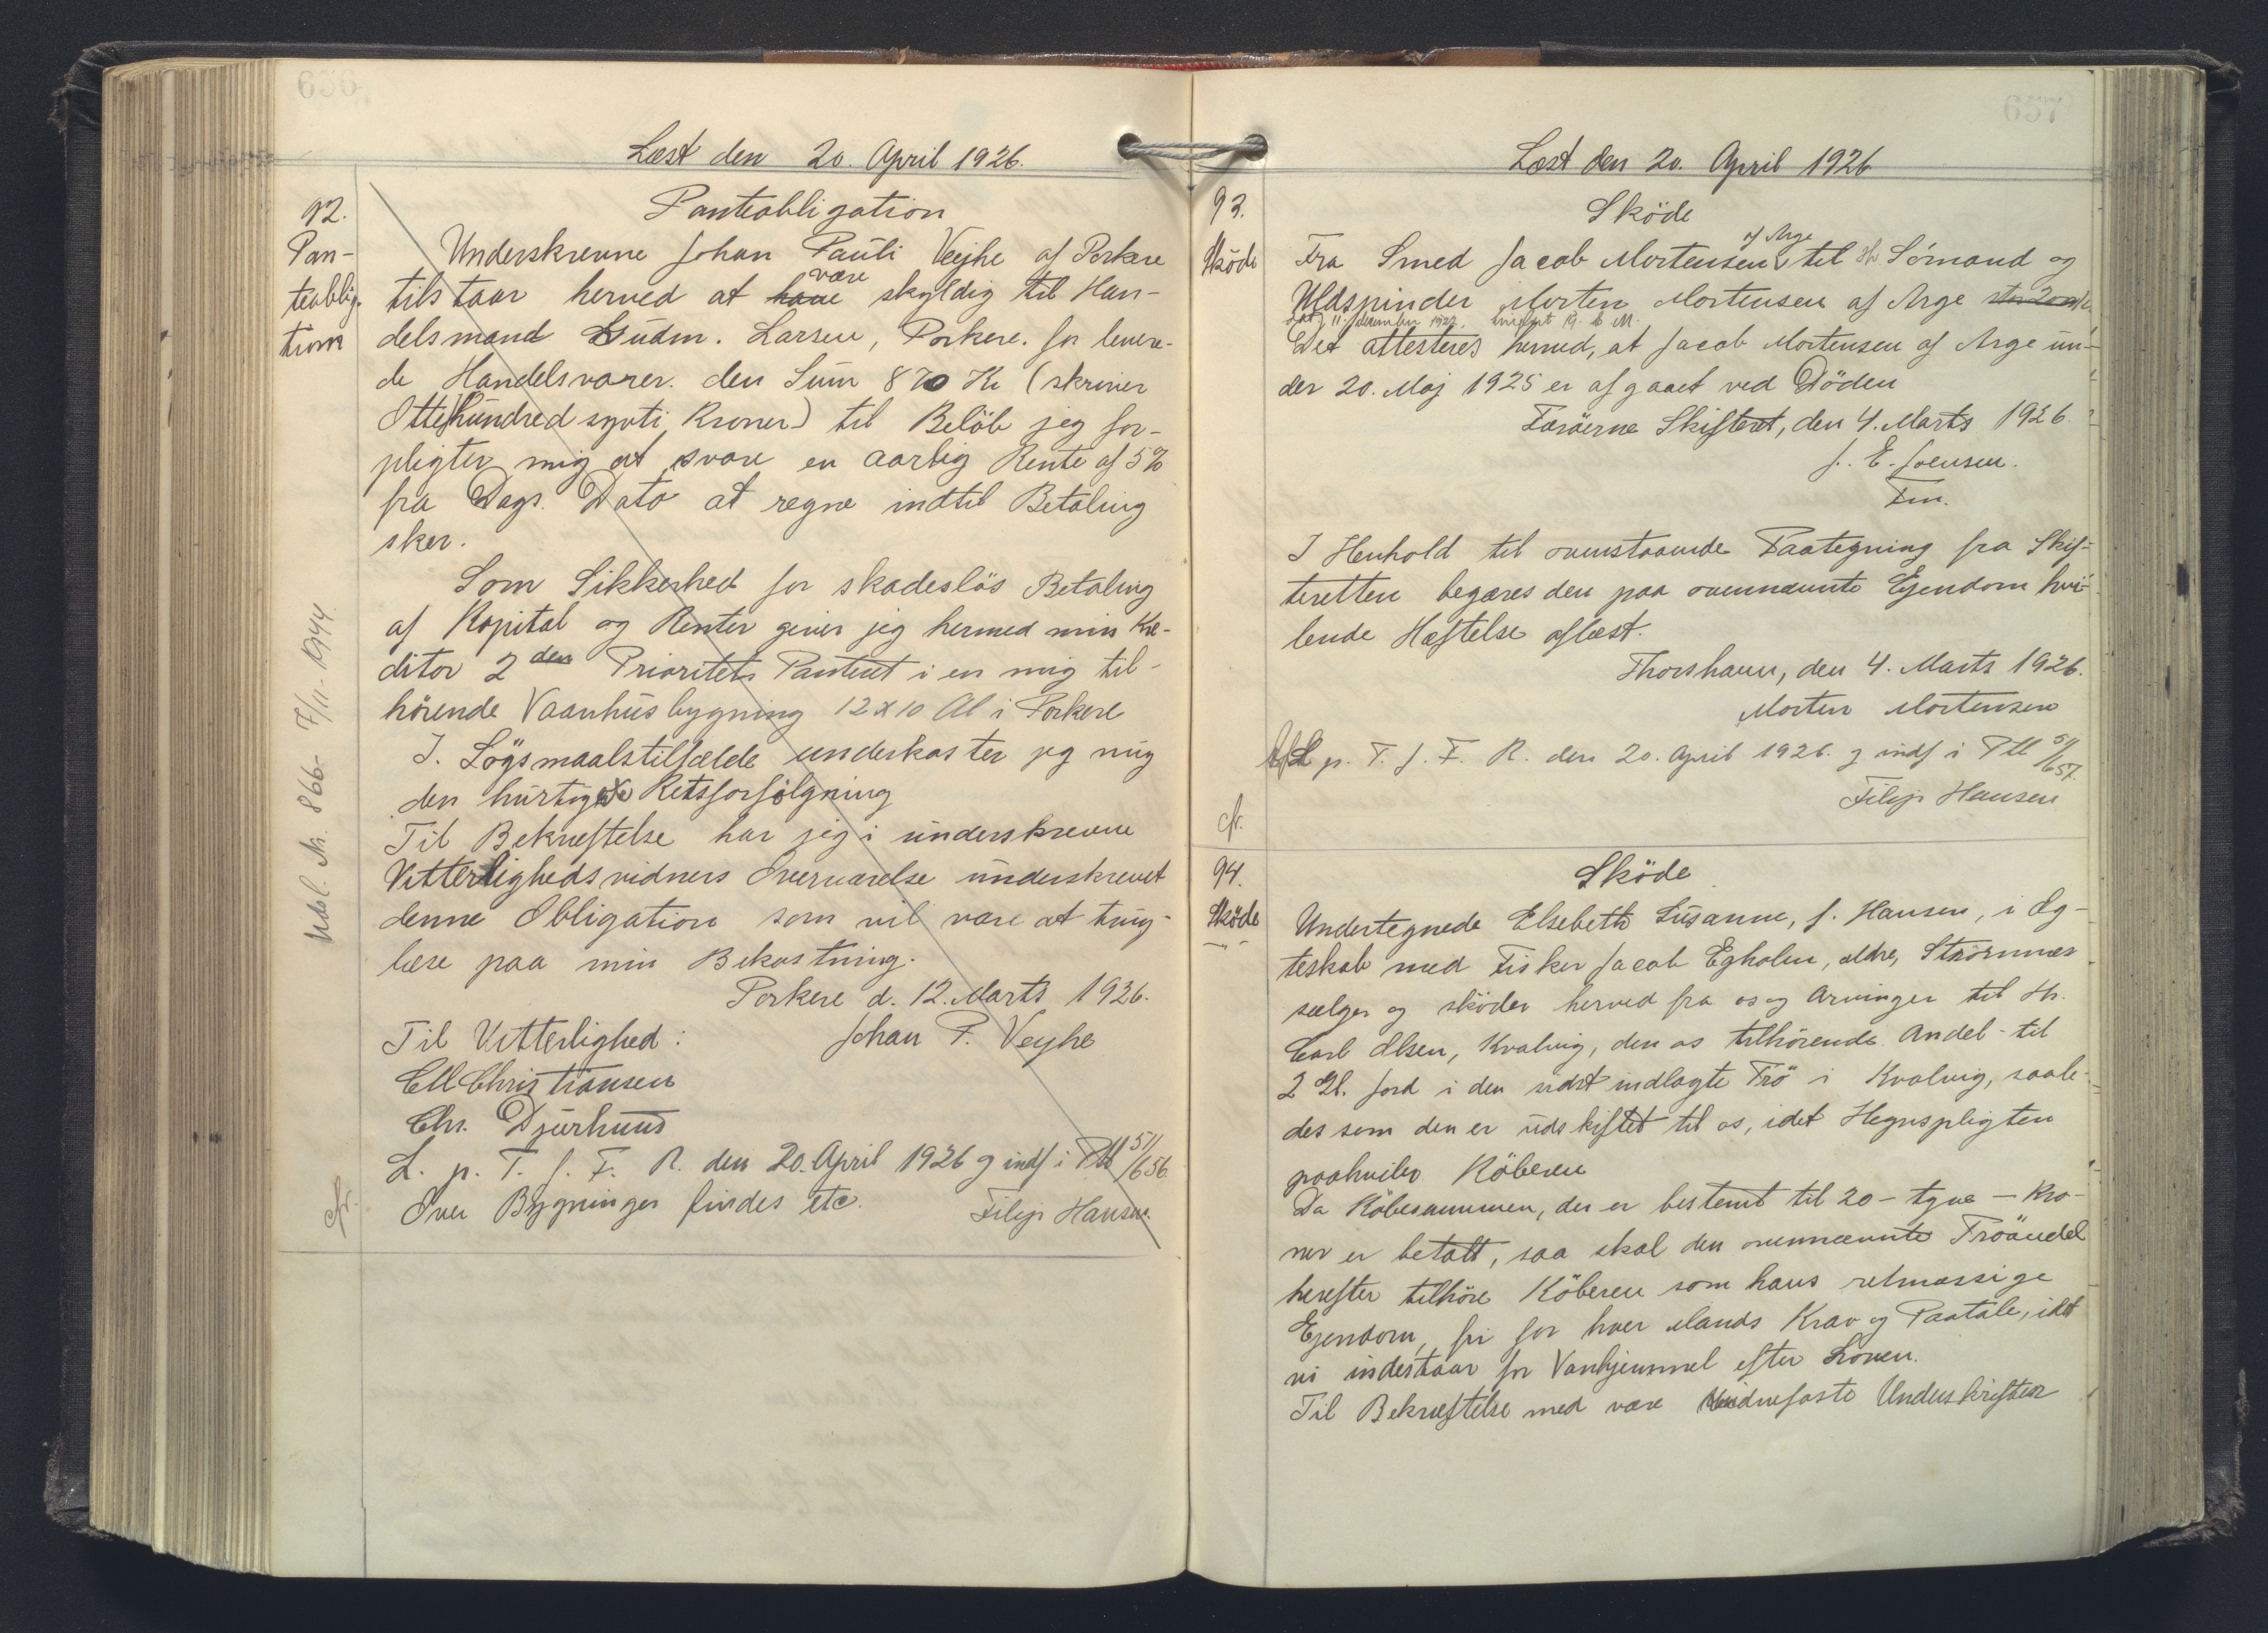 656
Læst den 20. April 1926.
92.
Pan-
teoblig-
tion
Panteobligation
Underskrevne Johan Pauli Vejhe af Porkere
være
tilstaar herved at have skyldig til Han-
delsmand Gudm. Larsen, Porkere. for levere-
de Handelsvarer. den Sum 870 Kr (skriver
Ottehundred syvti Kroner) til Beløb jeg for-
pligter mig at svare en aarlig Rente af 5%
fra Dags. Dato at regne indtil Betaling
sker.
Som Sikkerhed for skadesløs Betaling
af Kapital og Renter giver jeg hermed min Kre-
ditor 2den Prioritets Panteret i en mig til-
hörende Vaanhusbygning 12 x 10 Al i Porkere
I. Søgsmaalstilfælde underkaster jeg mig
den hurtigste Retsforfølgning
Til Bekræftelse har jeg i underskrevne
Vitterlighedsvidners Overværelse underskrevet
denne Obligation som vil være at ting-
læse paa min Bekostning.
Porkere d. 12. Marts 1926.
Til Vitterlighed: Johan P. Vejhe
Chr. Djurhuus
L. p. T. f. F. R. den 20. April 1926 og indf i Ptl 51/656.
Over Bygninger findes etc. Filip Hansen.
cfr.
Udsl. Nr. 866- 7/11-1944
657
Læst den 20. April 1926
93.
Sköde
Sköde
af Arge
Fra Smed Jacob Mortensen til Hr. Sömand og
Uldspinder Morten Mortensen af Arge
Det attesteres herved, at Jacob Mortensen af Arge un-
der 20. Maj 1925 er afgaaet ved Döden
Færöerne Skifteret, den 4. Marts 1926.
Fm.
I Henhold til ovenstaaende Paategning fra Skif-
teretten begæres den paa ovennævnte Ejendom hvi-
lende Hæftelse aflæst.
Thorshavn, den 4. Marts 1926.
Morten Mortensen
Afl p. T. f. F. R. den 20. April 1926. og indf i Ptl 51/657.
Filip Hansen
cfr.
94.
Sköde
Sköde
Undertegnede Elsebeth Susanne, f. Hansen, i Æg-
teskab med Fisker Jacob Egholm, ældre, Strømnæs
sælger og sköder herved fra os og Arvinger til Hr.
Carl Olsen, Kvalvig, den os tilhörende Andel til
2 Gl. Jord i den sidst indlagte Trö i Kvalvig, saale-
des som den er udskiftet til os, idet Hegnspligten
paahviler Köberen
Da Köbesummen, der er bestemt til 20 - tyve - Kro-
ner er betalt, saa skal den ovennævnte Tröandel
herefter tilhöre Köberen som hans retmæssige
Ejendom, fri for hver Mands Krav og Paatale, idet
vi indestaar for Vanhjemmel efter Loven.
Til Bekræftelse med vore vidnefaste Underskrifter